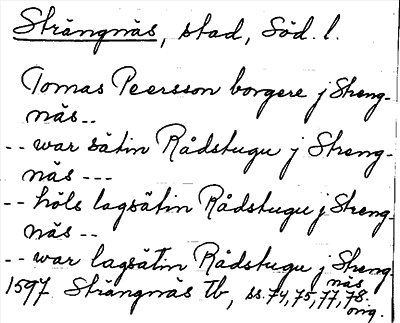 Strängnäs, stad, Söd. l.
Tomas Peersson borgere j Streng-
näs--
-- war sätin Rådstugu j Streng-
näs ---
-- höls lagsätin Rådstugu j Streng-
näs --
-- war lagsätin Rådstugu j Streng
näs
1597 Strängnäs tb, ss. 74, 75, 77, 78.
orig.